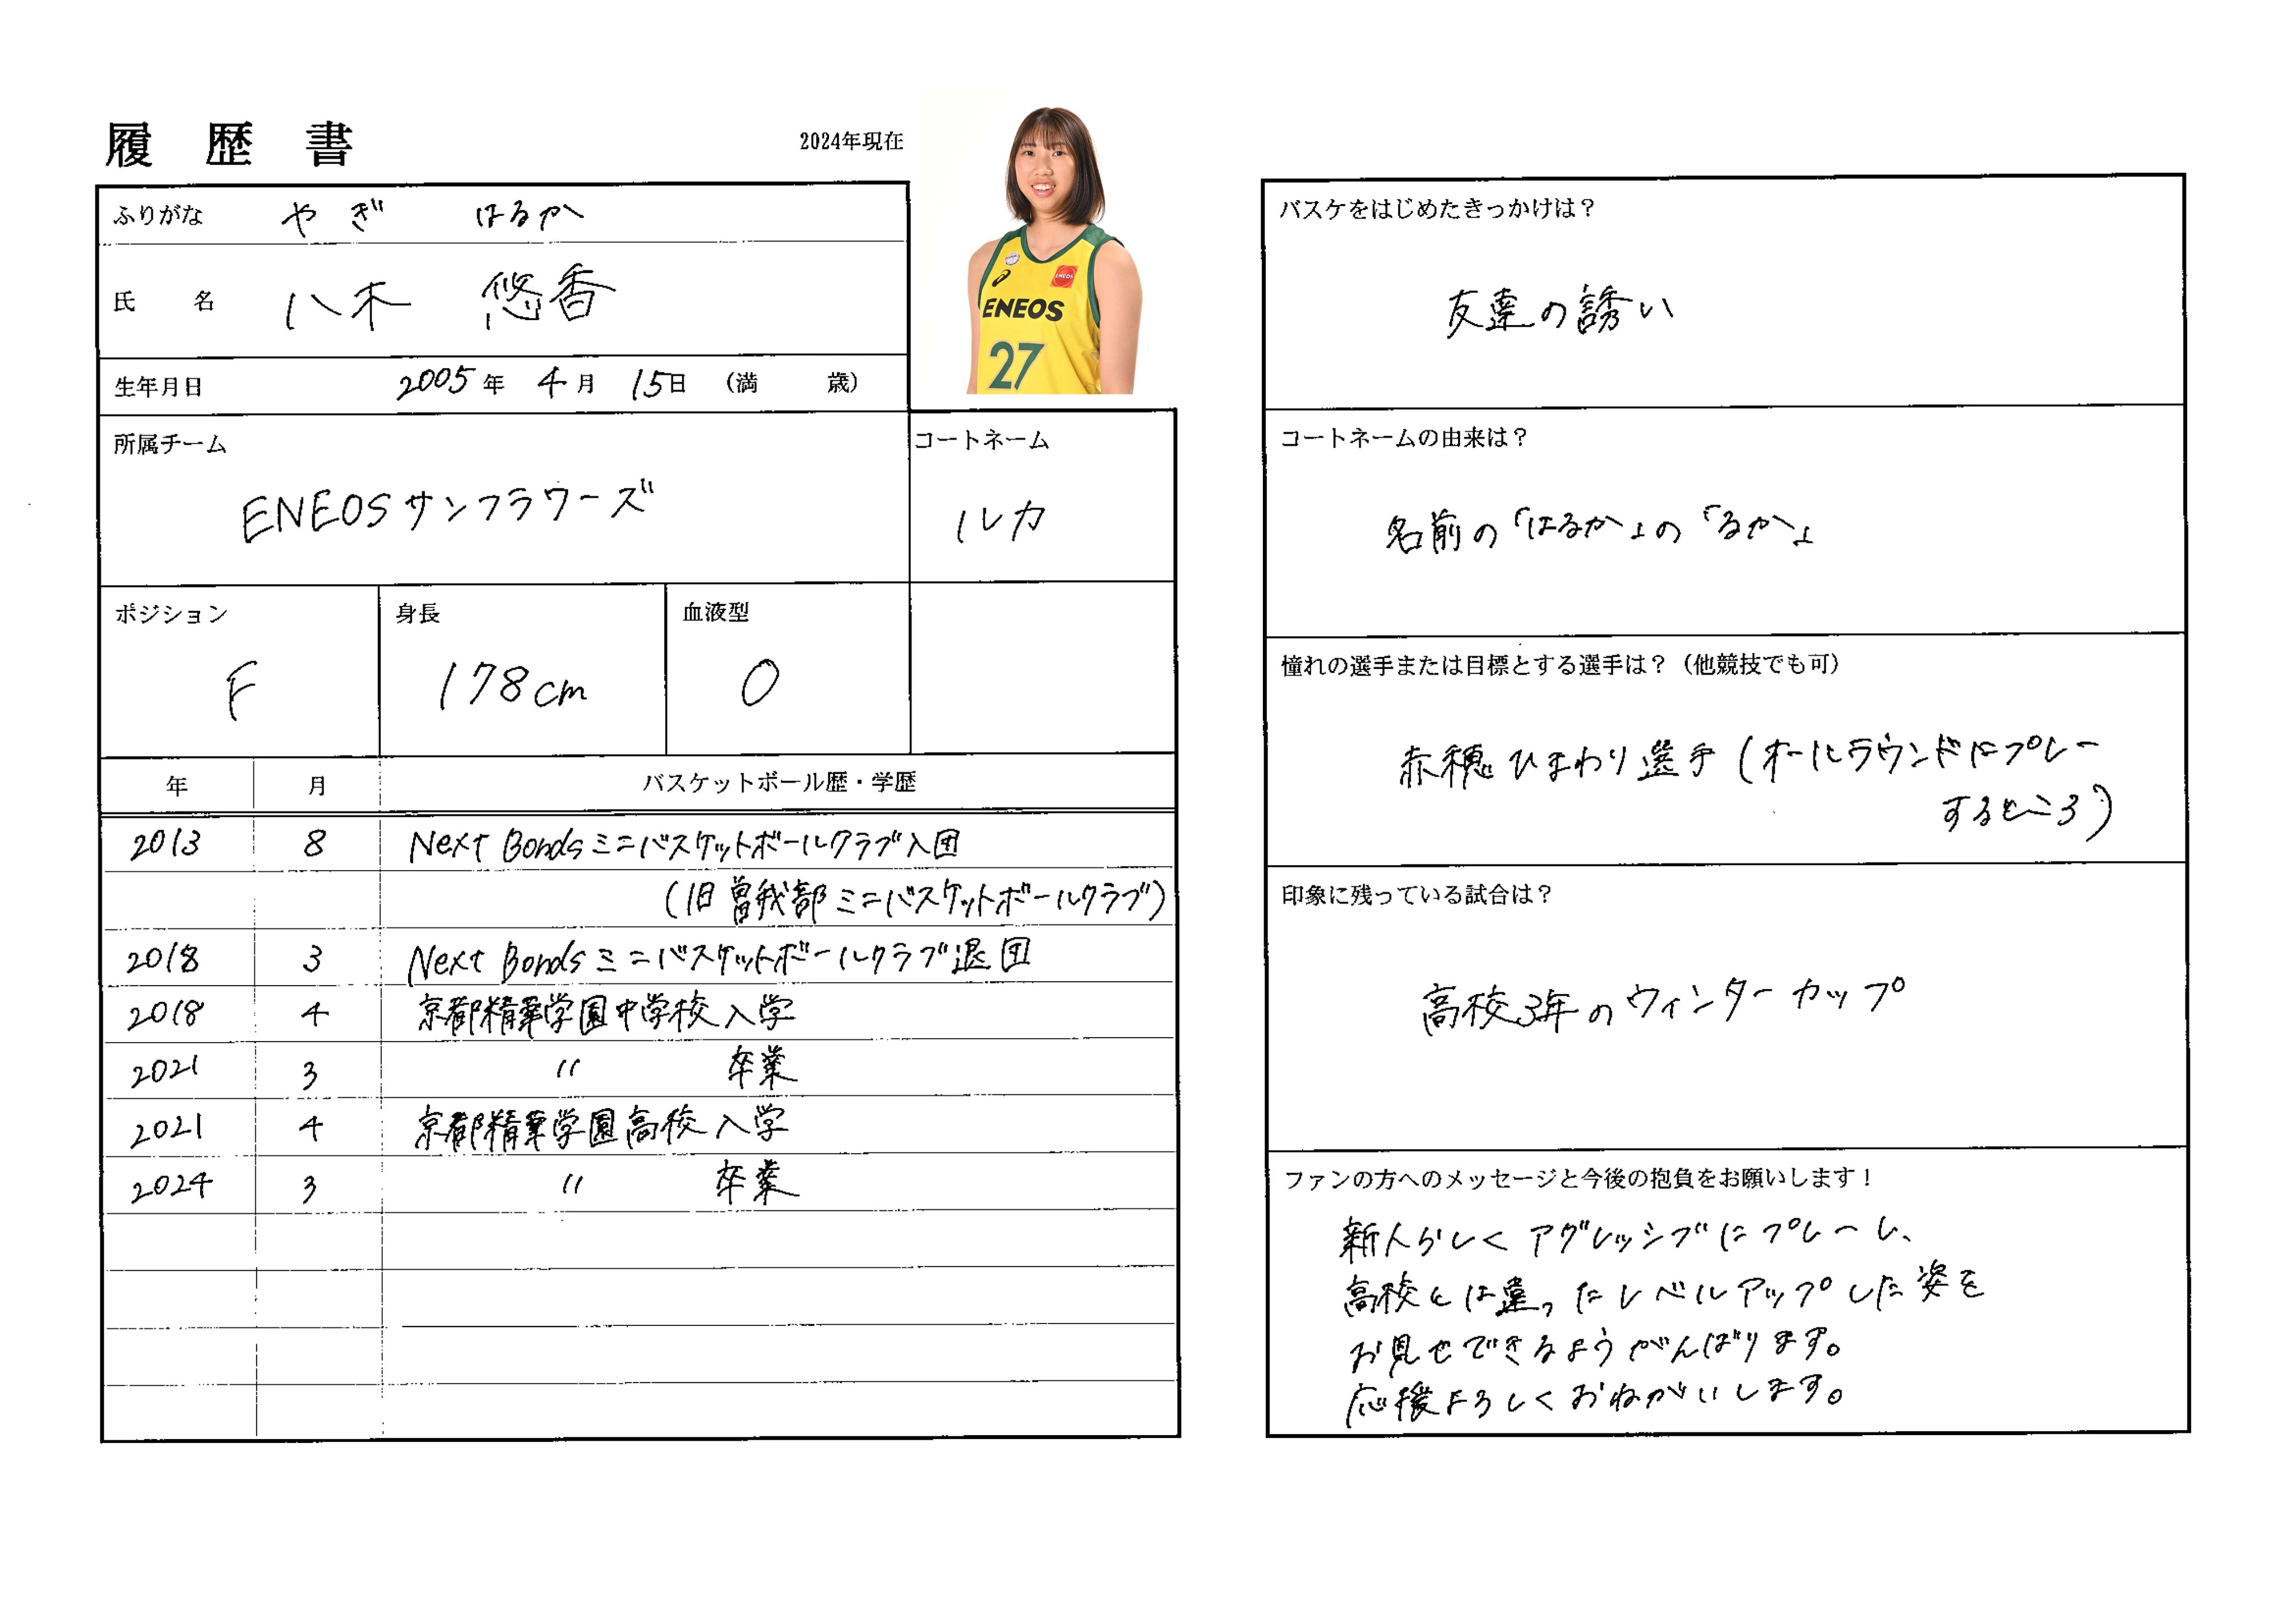 履歴書
2024年現在
ふりがな やぎ はるか
氏名 八木 悠香
生年月日 2005年 4月 15日 (満 歳)
所属チーム
ENEOSサンフラワーズ
コートネーム
ルカ
ポジション
F
身長
178cm
血液型
O
ENEOS
ENEOS
27
年 月 バスケットボール歴・学歴
2013 8 Next Bondsミニバスケットボールクラブ入団
(旧曽我部ミニバスケットボールクラブ)
2018 3 Next Bondsミニバスケットボールクラブ退団
2018 4 京都精華学園中学校入学
2021 3 〃 卒業
2021 4 京都精華学園高校入学
2024 3 〃 卒業
バスケをはじめたきっかけは?
友達の誘い
コートネームの由来は?
名前の「はるか」の「るか」
憧れの選手または目標とする選手は?(他競技でも可)
赤穂ひまわり選手(オールラウンドにプレー
するところ)
印象に残っている試合は?
高校3年のウィンターカップ
ファンの方へのメッセージと今後の抱負をお願いします!
新人らしくアグレッシブにプレーし、
高校とは違ったレベルアップした姿を
お見せできるようがんばります。
応援よろしくおねがいします。